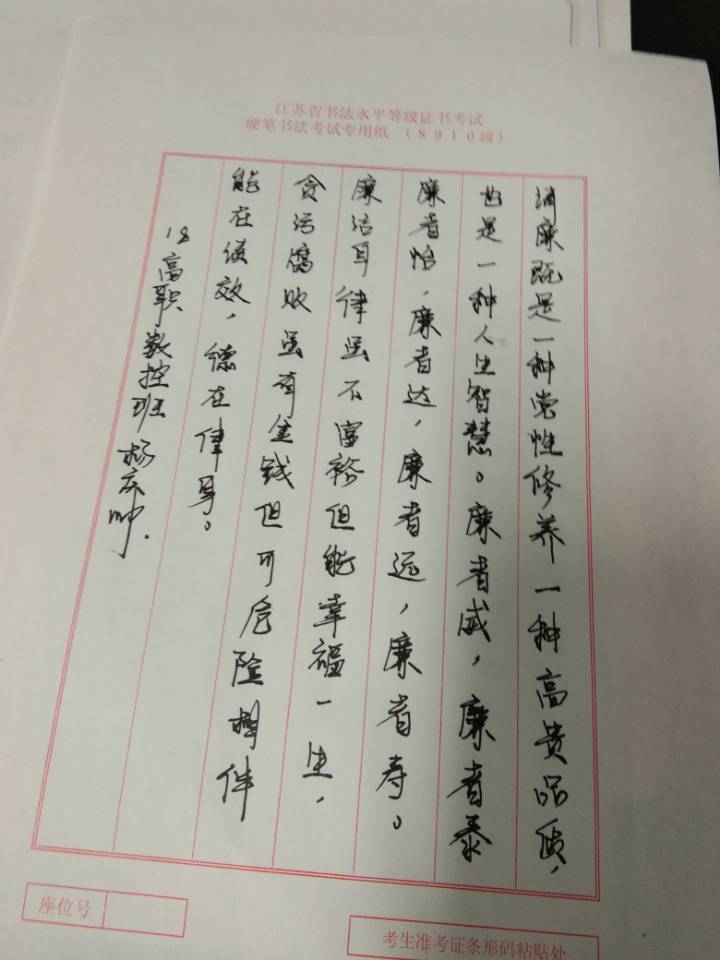 江苏省书法水平等级证书考试
硬笔书法考试专用纸（8910级）
清廉既是一种党性修养一种高贵品质，
也是一种人生智慧。廉者威，廉者泰
廉者怡，廉者达，廉者远，廉者寿。
廉洁耳律虽不富裕但能幸福一生，
贪污腐败虽有金钱但可危险相伴
能在绩效，德在律耳。
18高职数控班杨庆
座位号
考生准考证条形码粘贴处